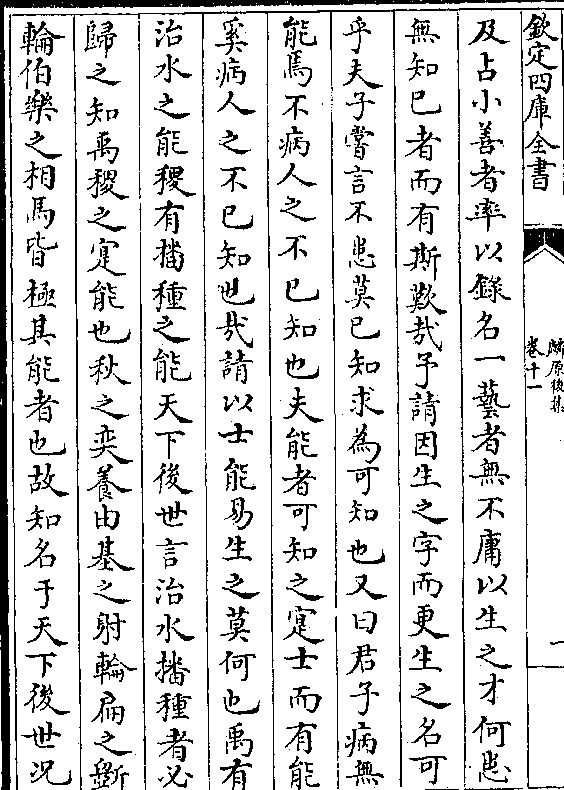 欽定四庫全書
麟原後集
卷十一
一
及占小善者率以錄名一藝者無不庸以生之才何患
無知己者而有斯歎哉予請因生之字而更生之名可
乎夫子嘗言不患莫己知求為可知也又曰君子病無
能焉不病人之不己知也夫能者可知之寔士而有能
奚病人之不己知也哉請以士能易生之莫何也禹有
治水之能稷有播種之能天下後世言治水播種者必
歸之知禹稷之寔能也秋之奕養由基之射輪扁之斵
輪伯樂之相馬皆極其能者也故知名于天下後世况